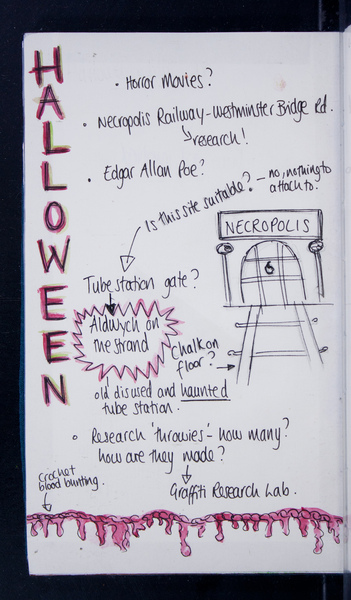 HALLOWEEN
• Horror Movies?
• Necropolis Railway - Westminster Bridge Rd.
research!
• Edgar Allan Poe?
Is this site suitable? - no, nothing to
attach to.
NECROPOLIS
Tube station gate?
Aldwych on
the strand
Chalk on
floor?
old disused and haunted
tube station.
• Research 'throwies' - how many?
how are they made?
Graffiti Research Lab.
crochet
blood bunting.